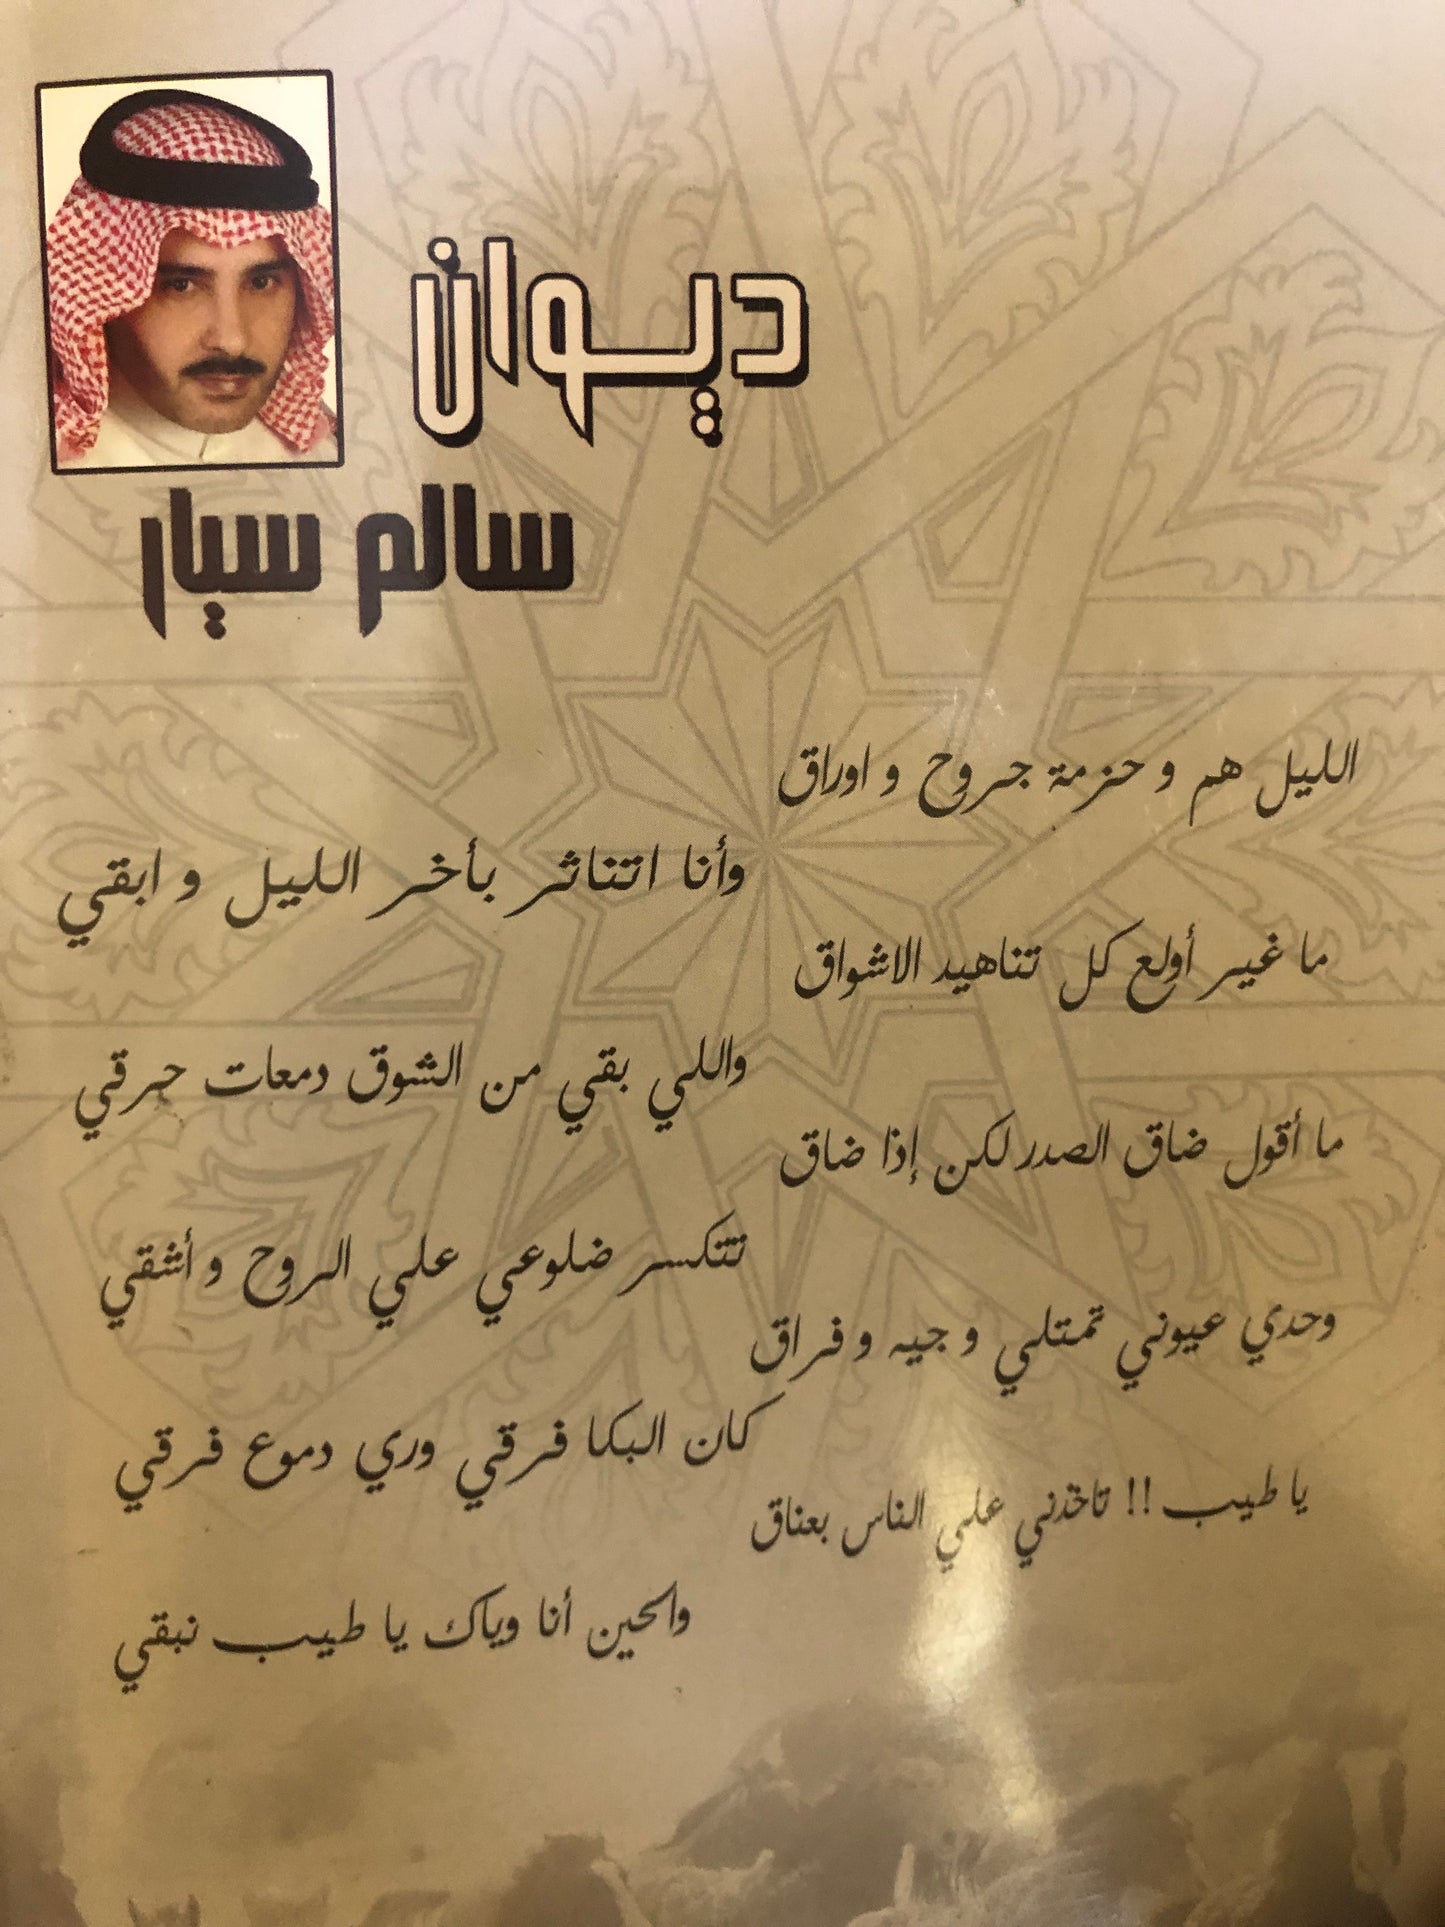 ديوان
سالم سيار
الليل هم و حزمة جروح و اوراق
وأنا اتناثر بأخر الليل و ابقي
ما غير أولع كل تناهيد الاشواق
واللي بقي من الشوق دمعات حرقي
ما أقول ضاق الصدر لكن إذا ضاق
تتكسر ضلوعي علي الروح و أشقي
وحدي عيوني تمتلي و جيه و فراق
كان البكا فرقي وري دموع فرقي
يا طيب !! تاخذني علي الناس بعناق
والحين أنا وياك يا طيب نبقي